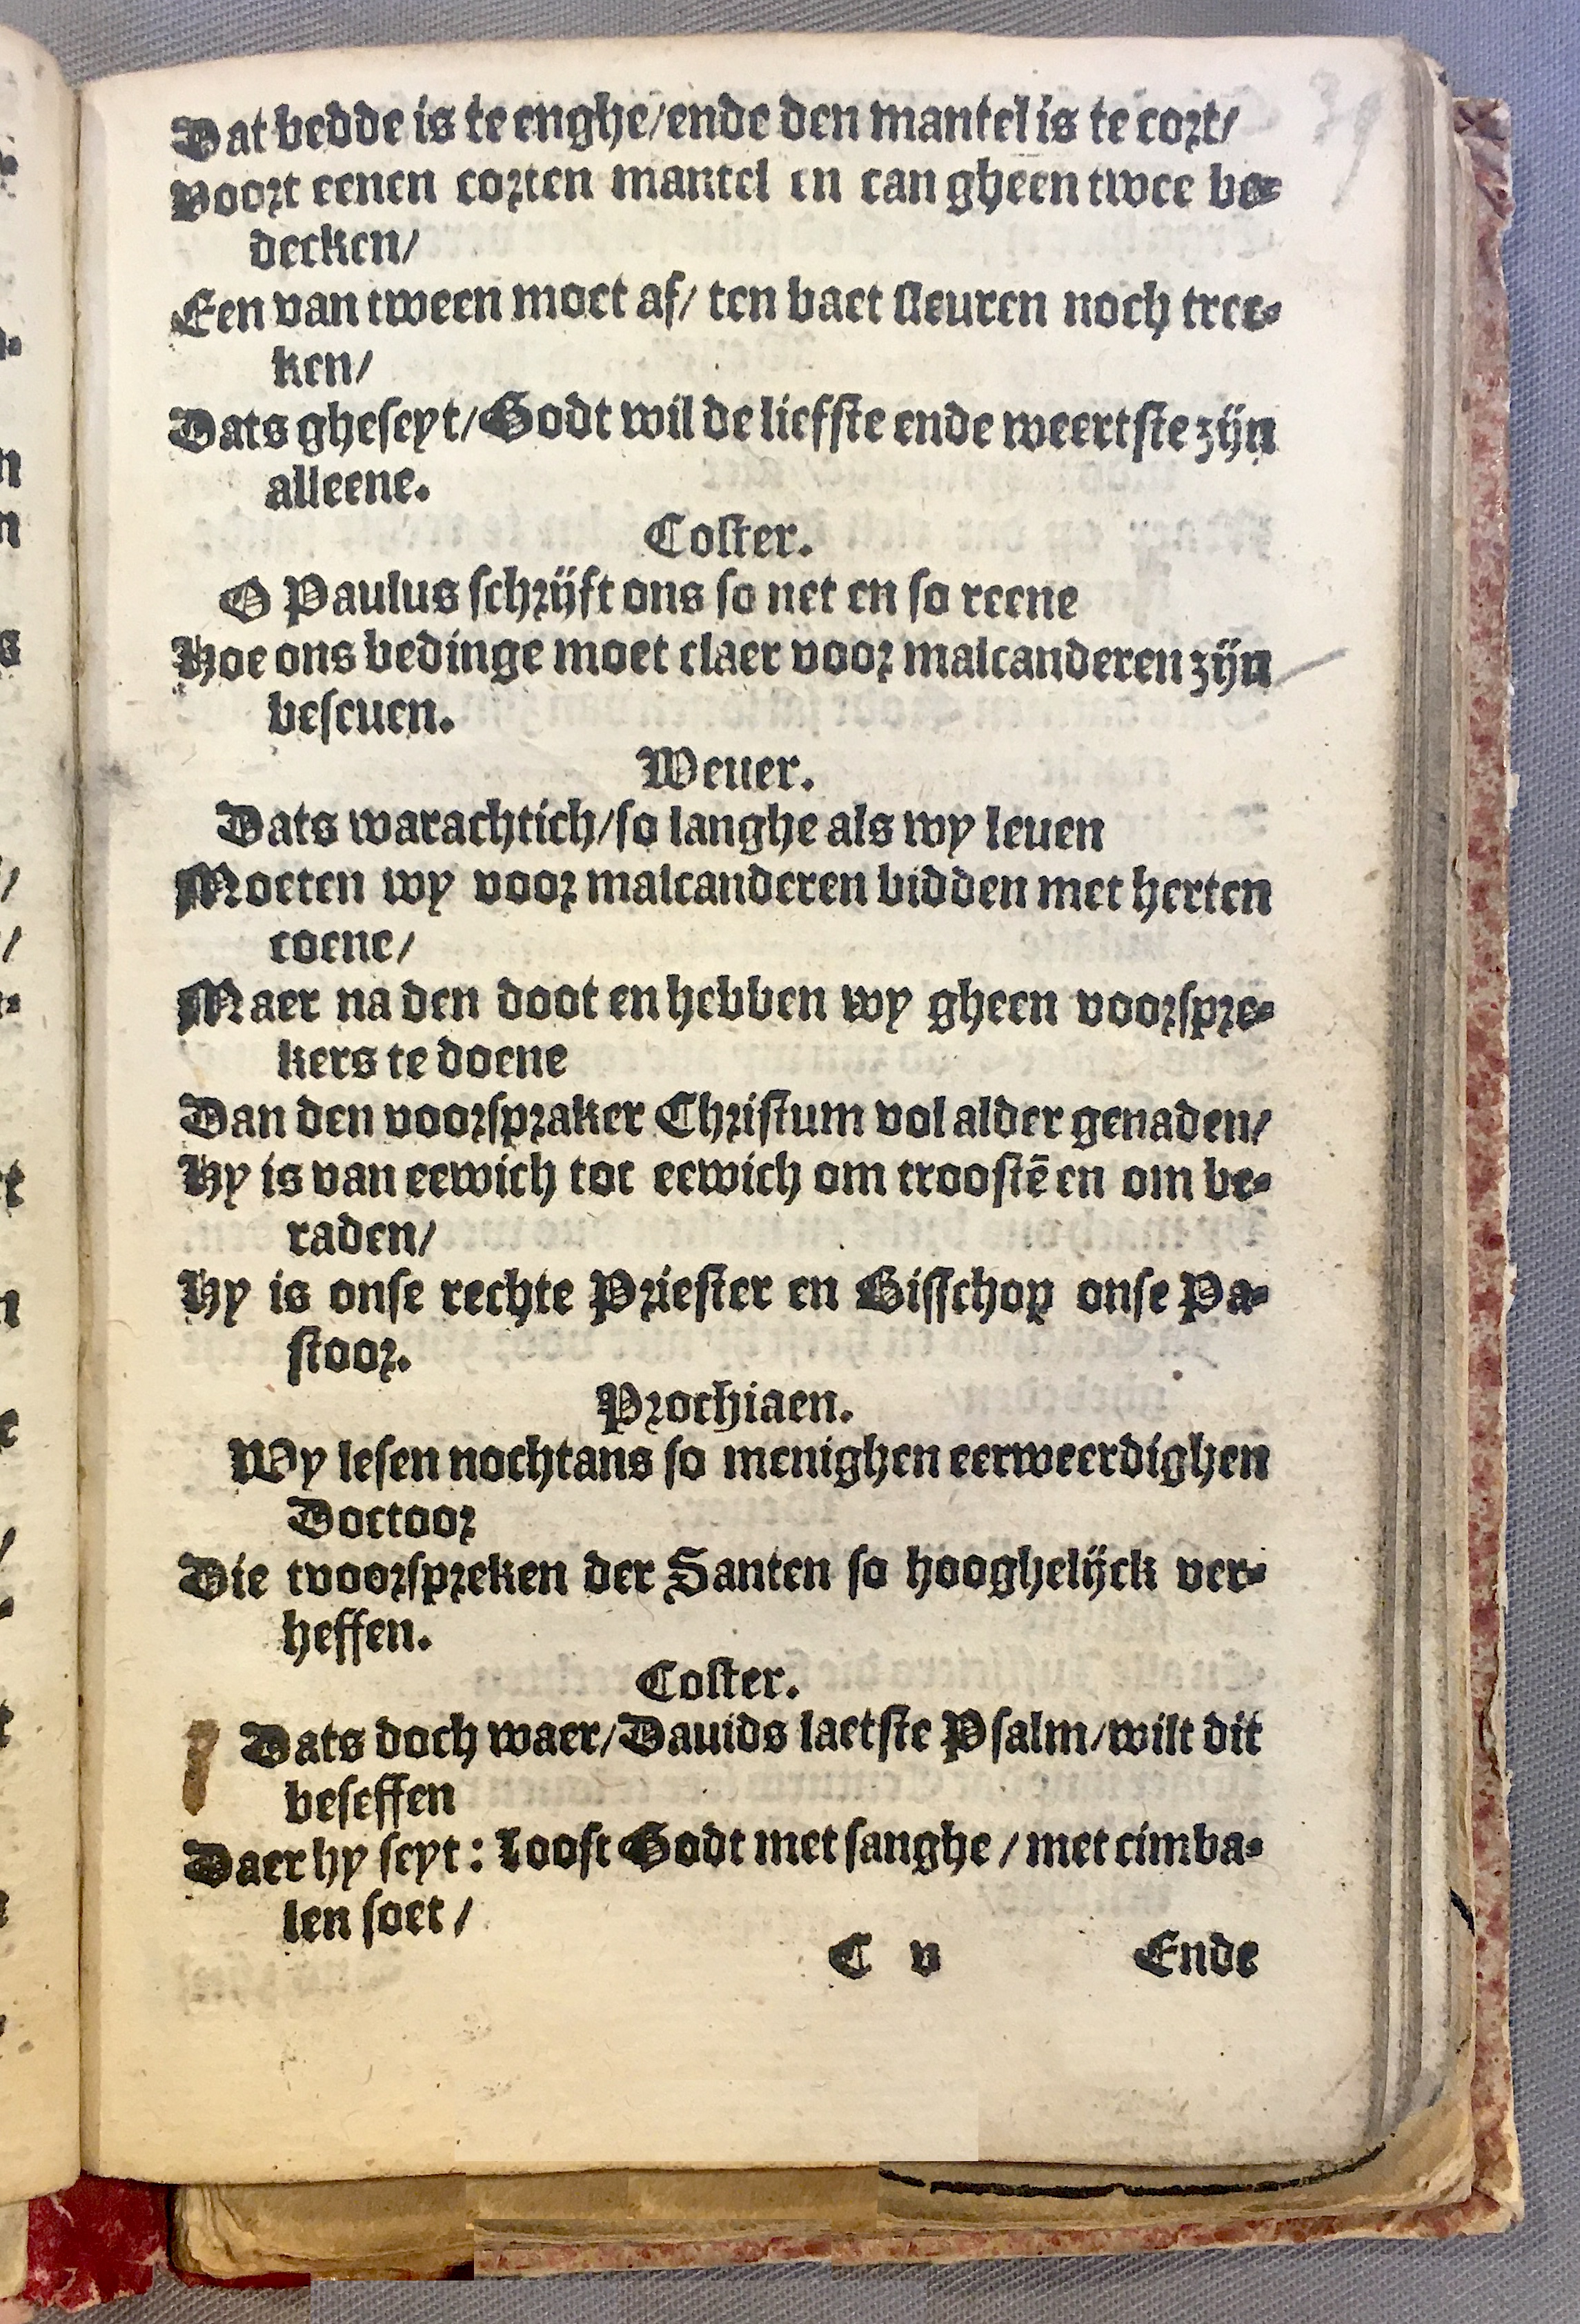 Dat bedde is te enghe/ende den mantel is te cort/
Voort eenen corten mantel en can gheen twee be-
decken/
Een van tween moet af/ ten baet sleuren noch trec-
ken/
Dats gheseyt/Godt wil de liefste ende weertste zijn
alleene.
Coster.
O Paulus schrijft ons so net en so reene
Hoe ons bedinge moet claer voor malcanderen zijn
beseuen.
Weuer.
Dats warachtich/so langhe als wy leuen
Moeten wy voor malcanderen bidden met herten
coene/
Maer na den doot en hebben wy gheen voorspre-
kers te doene
Dan den voorspraker Christum vol alder genaden/
Hy is van eewich tot eewich om troostē en om be-
raden/
Hy is onse rechte Priester en Bisschop onse Pa-
stoor.
Prochiaen.
Wy lesen nochtans so menighen eerweerdighen
Doctoor
Die tvoorspreken der Santen so hooghelijck ver-
heffen.
Coster.
Dats doch waer/Dauids laetste Psalm/wilt dit
beseffen
Daer hy seyt: Looft Godt met sanghe / met cimba-
len soet /
C v Ende